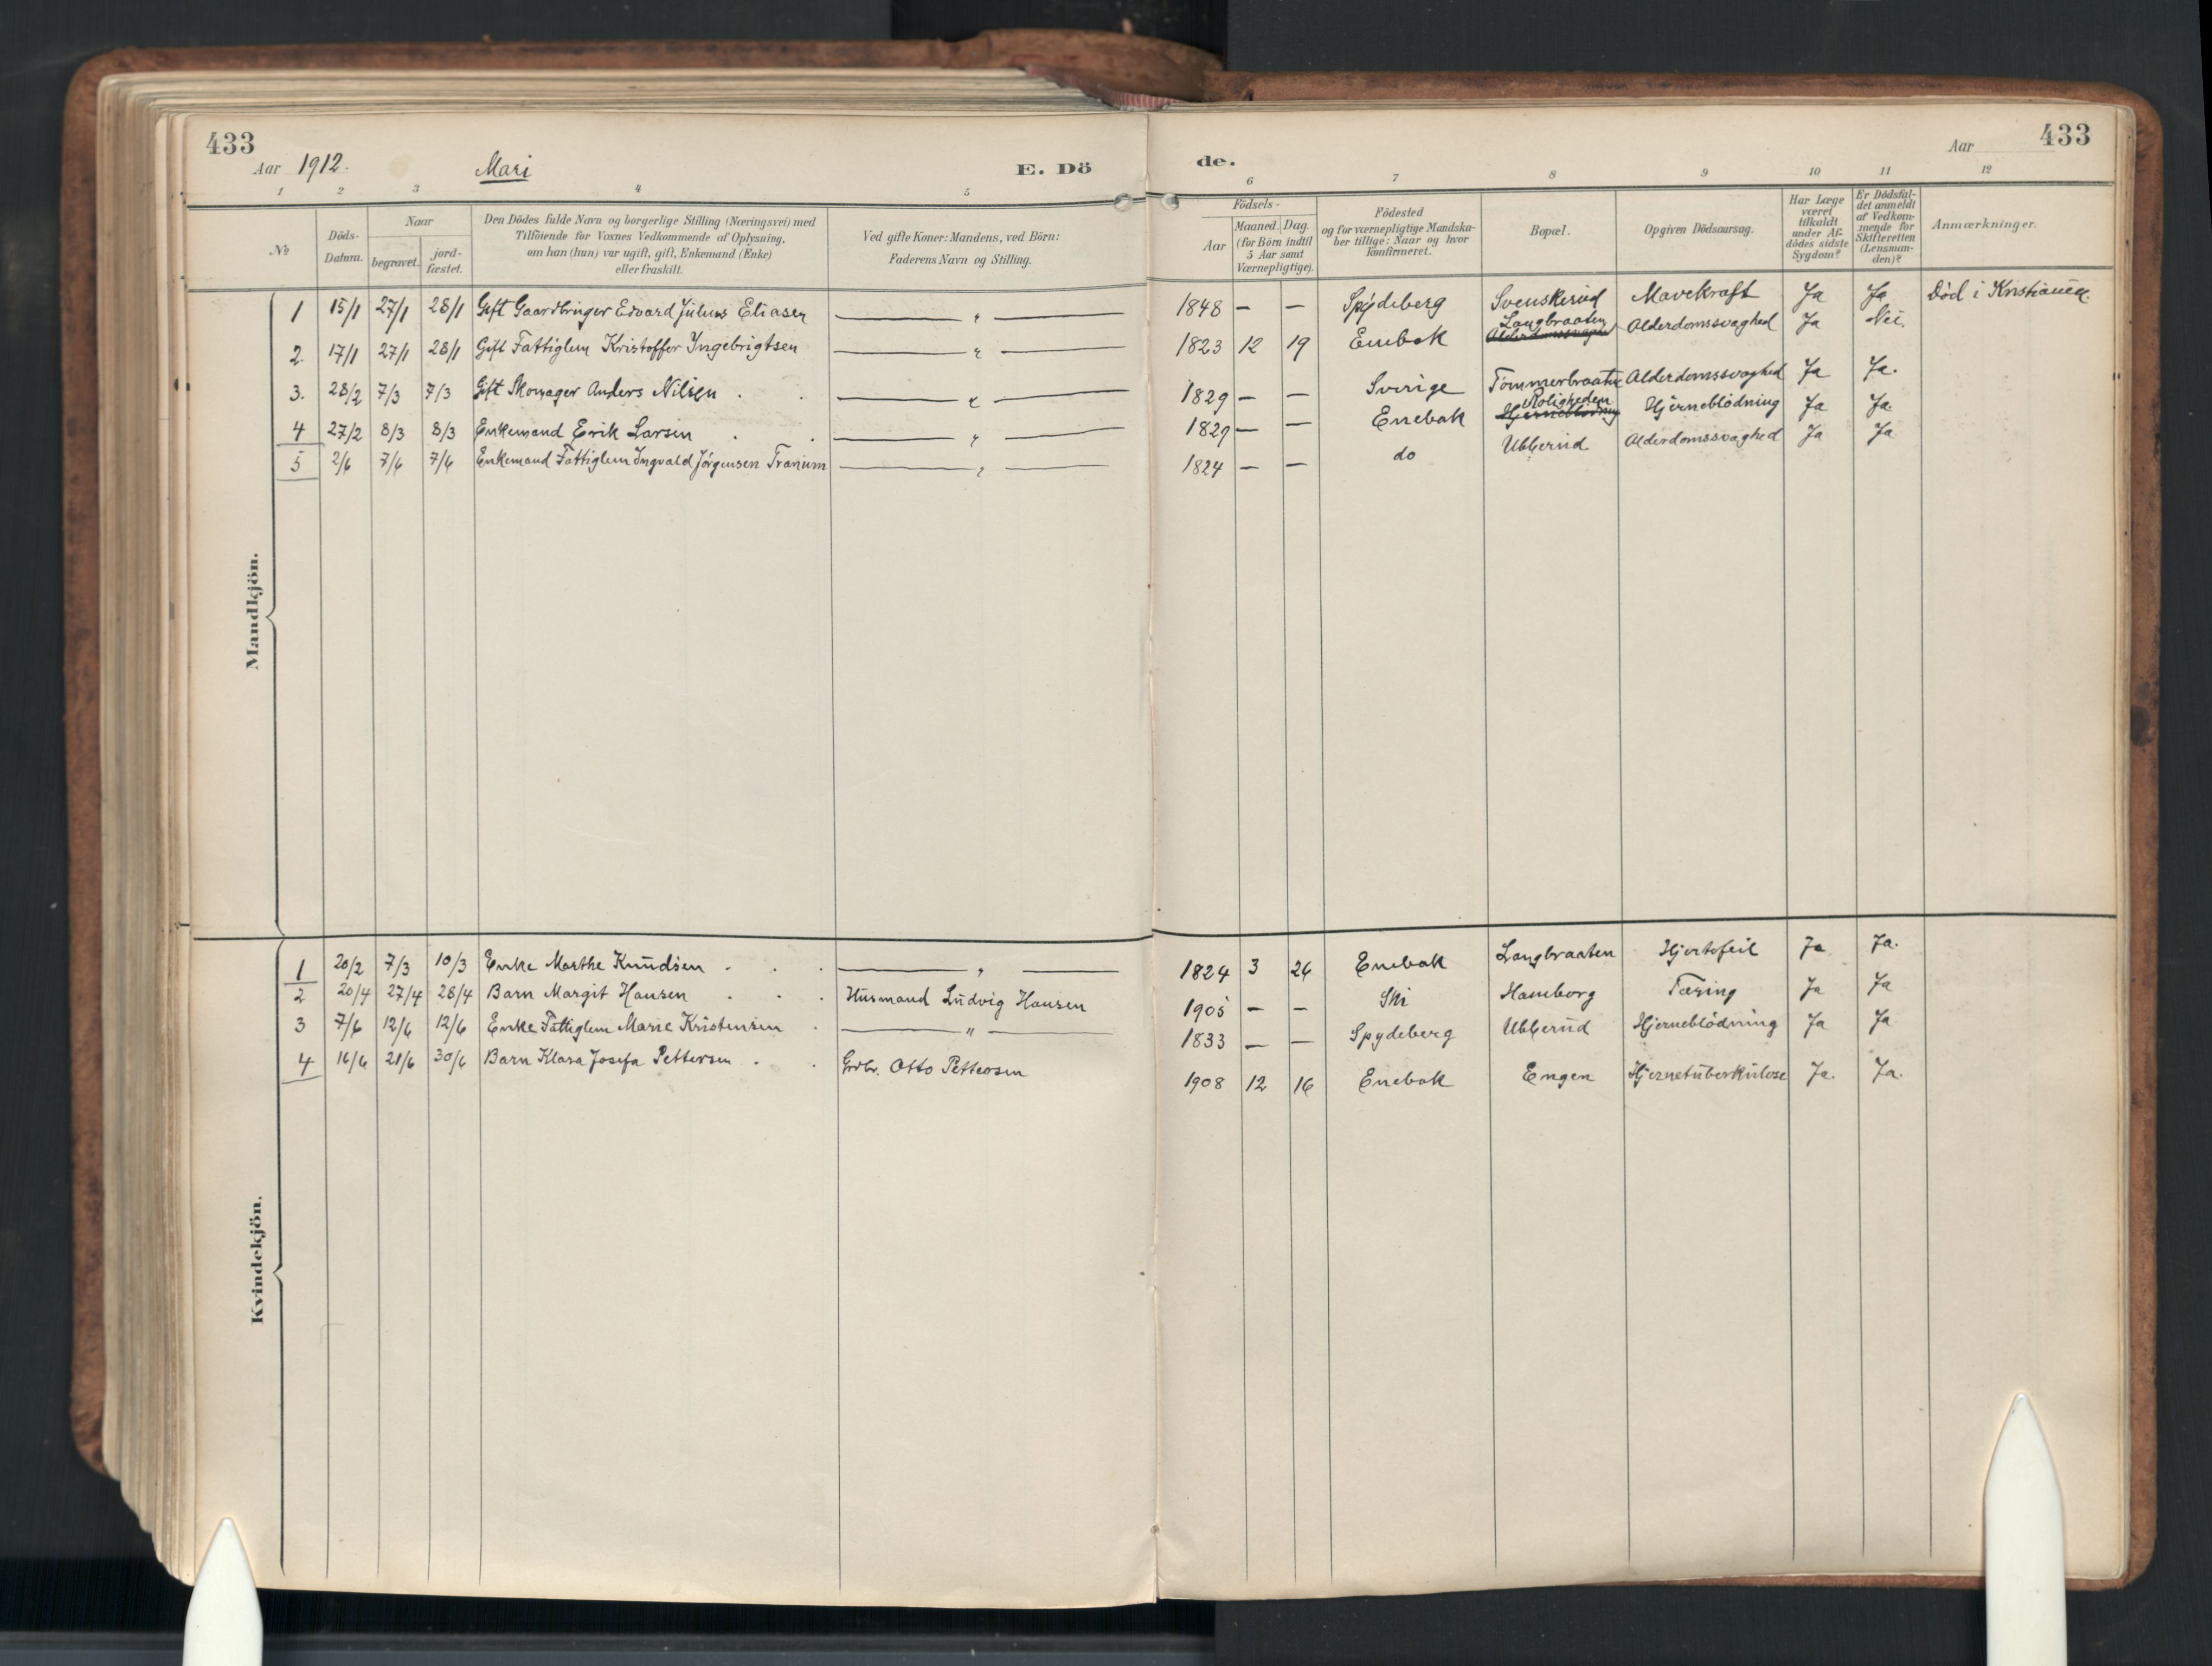 433
Aar 1912.
Mari
E. Dö
de.
Aar
433
1 2 3 4 5 6 7 8 9 10 11 12
№
Döds-
Datum.
Naar
begravet.
jord-
fæstet.
Den Dödes fulde Navn og borgerlige Stilling (Næringsvei) med
Tilföiende for Voxnes Vedkommende af Oplysning,
om han (hun) var ugift, gift, Enkemand (Enke)
eller fraskilt.
Ved gifte Koner: Mandens, ved Börn:
Faderens Navn og Stilling.
Födsels-
Aar
Maaned. Dag.
(for Börn indtil
5 Aar samt
Værnepligtige).
Födested
og for værnepligtige Mandska-
ber tillige: Naar og hvor
konfirmeret.
Bopæl.
Opgiven Dödsaarsag.
Har Læge
været
tilkaldt
under Af-
dödes sidste
Sygdom?
Er Dödsfal-
det anmeldt
af Vedkom-
mende for
Skifteretten
(Lensman-
den)?
Anmærkninger.
Mandkjön.
1 15/1 27/1 28/1 Gift Gaardbruger Edvard Julius Eliasen — " — 1848 — — Spydeberg Svenskerud Mavekraft Ja Ja Död i Kristiania.
2. 17/1 27/1 28/1 Gift Fattiglem Kristoffer Yngebrigtsen — " — 1823 12 19 Enebak Langbraaten Alderdomssvaghed Ja Nei.
3. 28/2 7/3 7/3 Gift Skomager Anders Nilsen . . — " — 1829 — — Sverige Tömmerbraaten Alderdomssvaghed Ja Ja.
4 27/2 8/3 8/3 Enkemand Erik Larsen . . — " — 1829 — — Enebak Roligheden Hjerneblödning Ja Ja.
5 2/6 7/6 7/6 Enkemand Fattiglem Yngvald Jörgensen Tranum — " — 1824 — — do Ubberud Alderdomssvaghed Ja Ja
Kvindekjön.
1 20/2 7/3 10/3 Enke Marthe Knudsen . . . — " — 1824 3 26 Enebak Langbraaten Hjertefeil Ja Ja.
2 20/4 27/4 28/4 Barn Margit Hansen . . . Husmand Ludvig Hansen 1905 — — Ski Hamborg Tæring Ja Ja
3 7/6 12/6 12/6 Enke Fattiglem Marie Kristensen . — " — 1833 — — Spydeberg Ubberud Hjerneblödning Ja Ja
4 16/6 21/6 30/6 Barn Klara Josefa Pettersen . . Grdbr. Otto Pettersen 1908 12 16 Enebak Engen Hjernetuberkulose Ja. Ja.